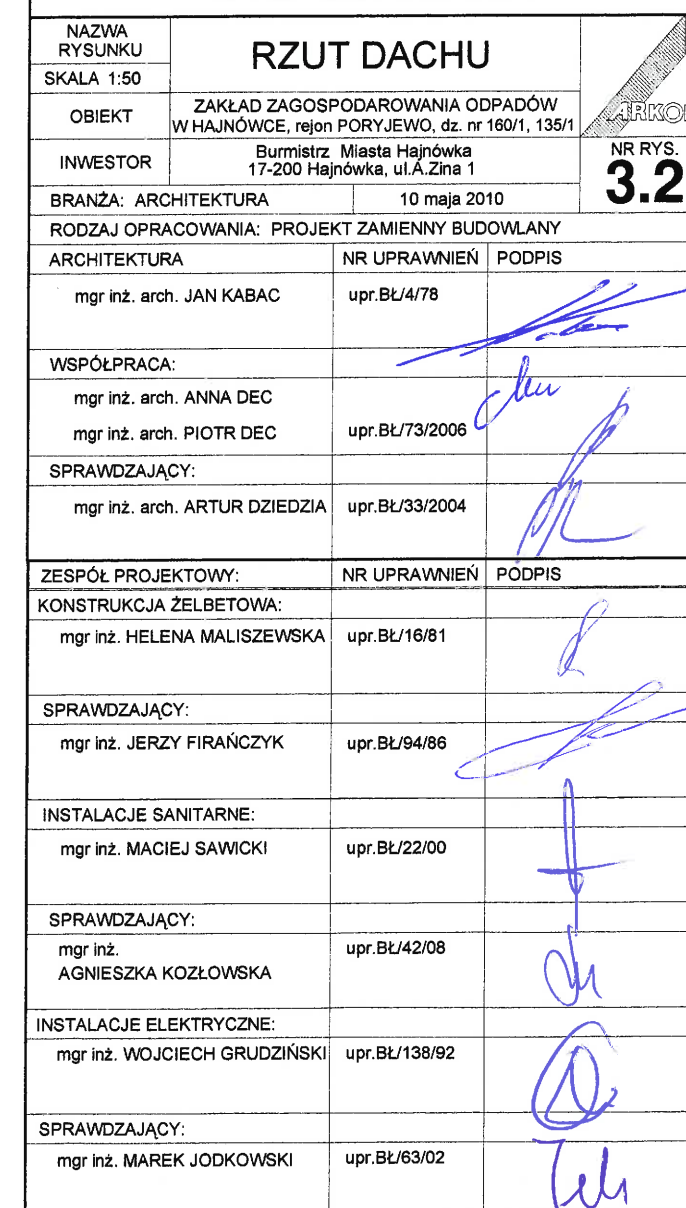 NAZWA
RYSUNKU
RZUT DACHU
SKALA 1:50
OBIEKT
ZAKŁAD ZAGOSPODAROWANIA ODPADÓW
W HAJNÓWCE, rejon PORYJEWO, dz. nr 160/1, 135/1
INWESTOR
Burmistrz Miasta Hajnówka
17-200 Hajnówka, ul.A.Zina 1
NR RYS.
3.2
BRANŻA: ARCHITEKTURA
10 maja 2010
RODZAJ OPRACOWANIA: PROJEKT ZAMIENNY BUDOWLANY
ARCHITEKTURA NR UPRAWNIEŃ PODPIS
mgr inż. arch. JAN KABAC upr.BŁ/4/78
WSPÓŁPRACA:
mgr inż. arch. ANNA DEC
mgr inż. arch. PIOTR DEC upr.BŁ/73/2006
SPRAWDZAJĄCY:
mgr inż. arch. ARTUR DZIEDZIA upr.BŁ/33/2004
ZESPÓŁ PROJEKTOWY: NR UPRAWNIEŃ PODPIS
KONSTRUKCJA ŻELBETOWA:
mgr inż. HELENA MALISZEWSKA upr.BŁ/16/81
SPRAWDZAJĄCY:
mgr inż. JERZY FIRAŃCZYK upr.BŁ/94/86
INSTALACJE SANITARNE:
mgr inż. MACIEJ SAWICKI upr.BŁ/22/00
SPRAWDZAJĄCY:
mgr inż. upr.BŁ/42/08
AGNIESZKA KOZŁOWSKA
INSTALACJE ELEKTRYCZNE:
mgr inż. WOJCIECH GRUDZIŃSKI upr.BŁ/138/92
SPRAWDZAJĄCY:
mgr inż. MAREK JODKOWSKI upr.BŁ/63/02